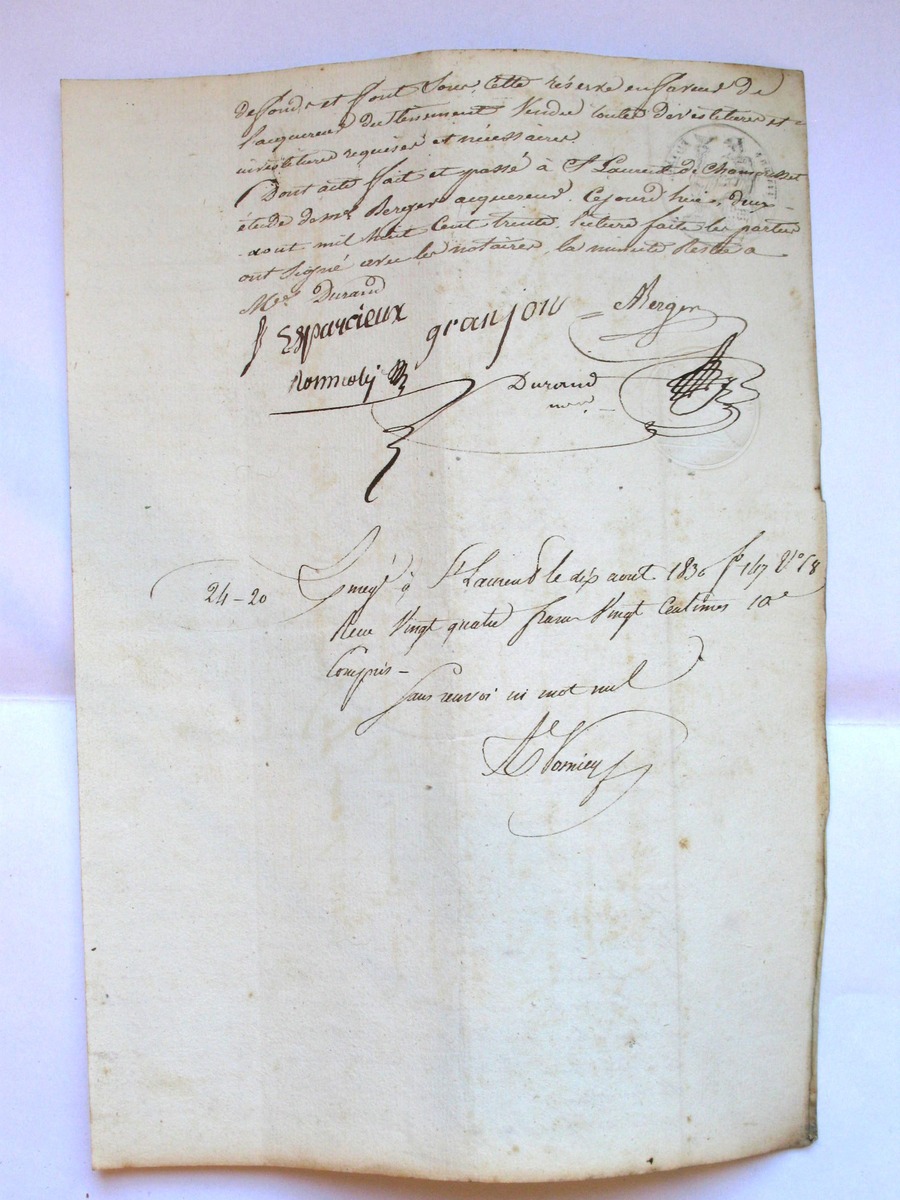 de fonds et font sous cette réserve en faveur de
l'acquereur du tenement vendu toutes devestitures et
investitures requises et nécessaires
Dont acte fait et passé à St Laurent de Chamousset
étude de me Berger acquereur. Cejourd'hui deux
aout mil huit cent trente, lecture faite les parties
ont signé avec les notaires, la minute Restée à
Me Durand
Esparcieux granjon Berger
Durand
24-20 à St Laurent le dix aout 1830 fo 147
Recu Vingt quatre francs Vingt Centimes 10e
Compris
Sans renvoi ni mot nul